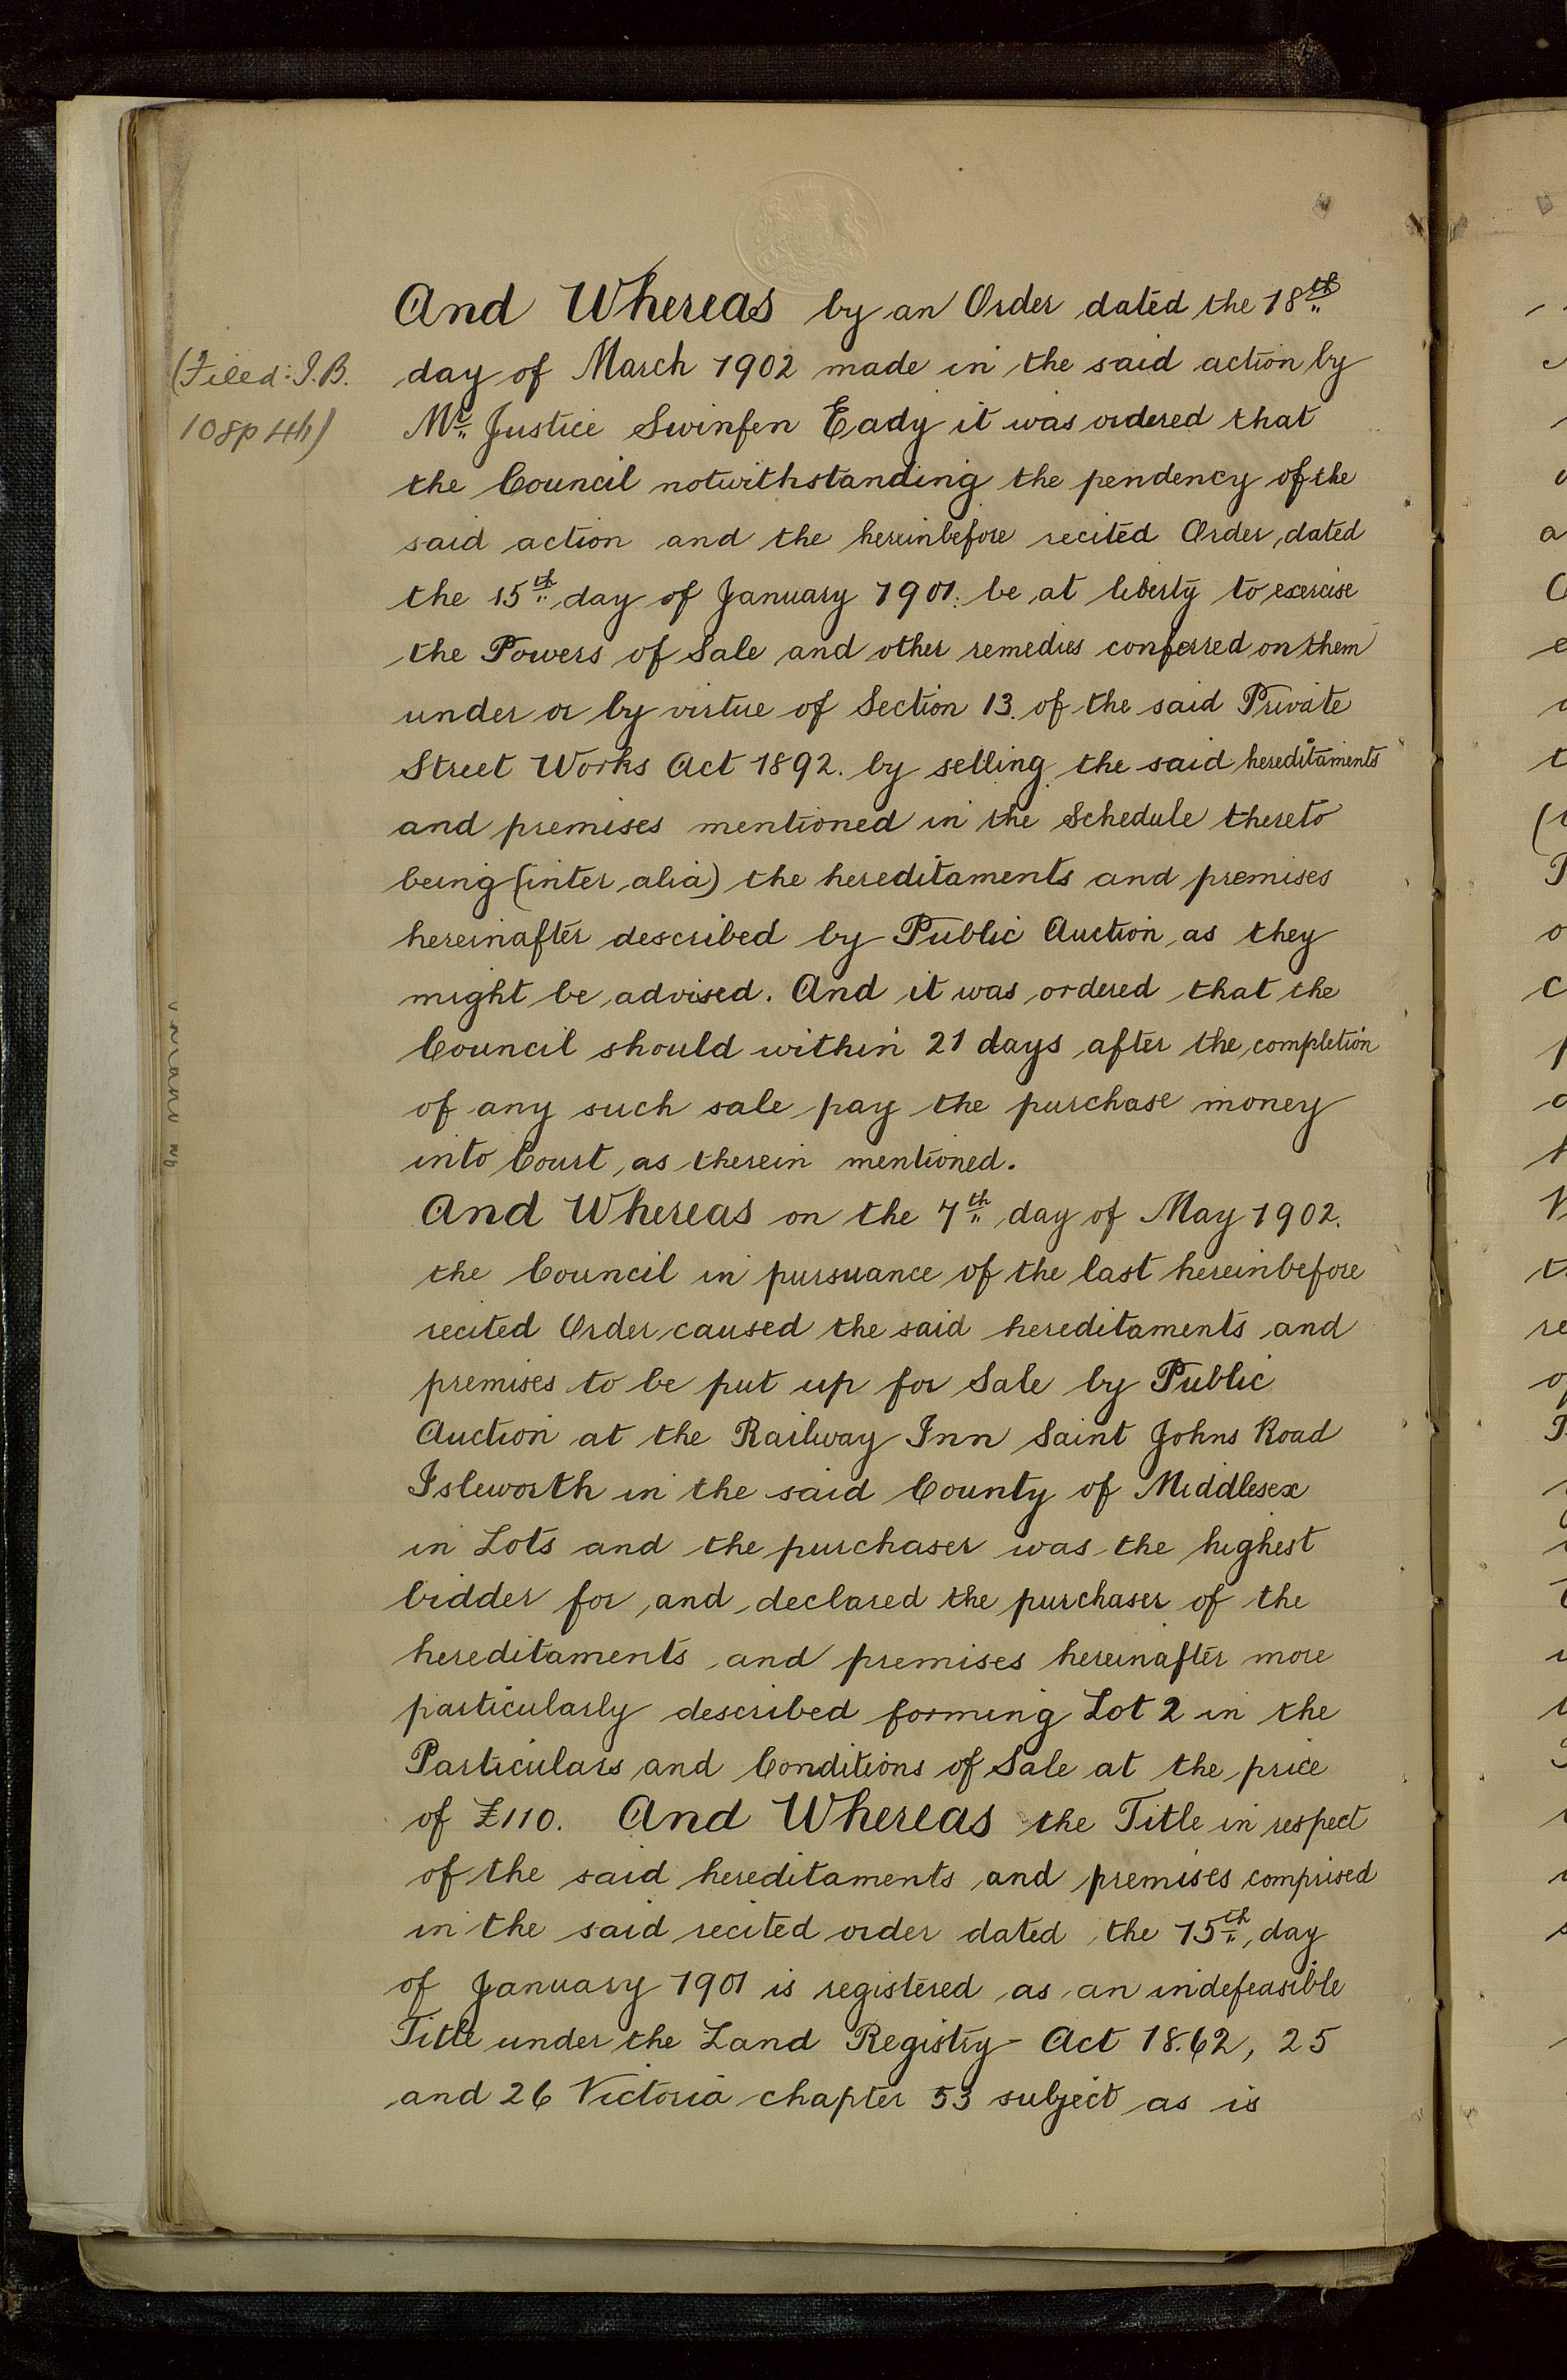 And Whereas by an Order dated the 18th
(Filed: I.B.
day of March 1902 made in the said action by
108p 44)
Mr. Justice Swinfen Eady it was ordered that
the Council notwithstanding the pendency of the
said action and the hereinbefore recited Order dated
the 15th day of January 1901. be at liberty to exercise
the Powers of Sale and other remedies conferred on them
under or by virtue of Section 13. of the said Private
Street Works Act 1892. by selling the said hereditaments
and premises mentioned in the Schedule thereto
being (inter alia) the hereditaments and premises
hereinafter described by Public Auction as they
might be advised. And it was ordered that the
Council should within 21 days after the completion
of any such sale pay the purchase money
into Court as therein mentioned.
And Whereas on the 7th day of May 1902.
the Council in pursuance of the last hereinbefore
recited Order caused the said hereditaments and
premises to be put up for Sale by Public
Auction at the Railway Inn Saint Johns Road
Isleworth in the said County of Middlesex
in Lots and the purchaser was the highest
bidder for and declared the purchaser of the
hereditaments and premises hereinafter more
particularly described forming Lot 2 in the
Particulars and Conditions of Sale at the price
of £110. And Whereas the Title in respect
of the said hereditaments and premises comprised
in the said recited order dated the 15th day
of January 1901 is registered as an indefeasible
Title under the Land Registry Act 18.62, 25
and 26 Victoria chapter 53 subject as is